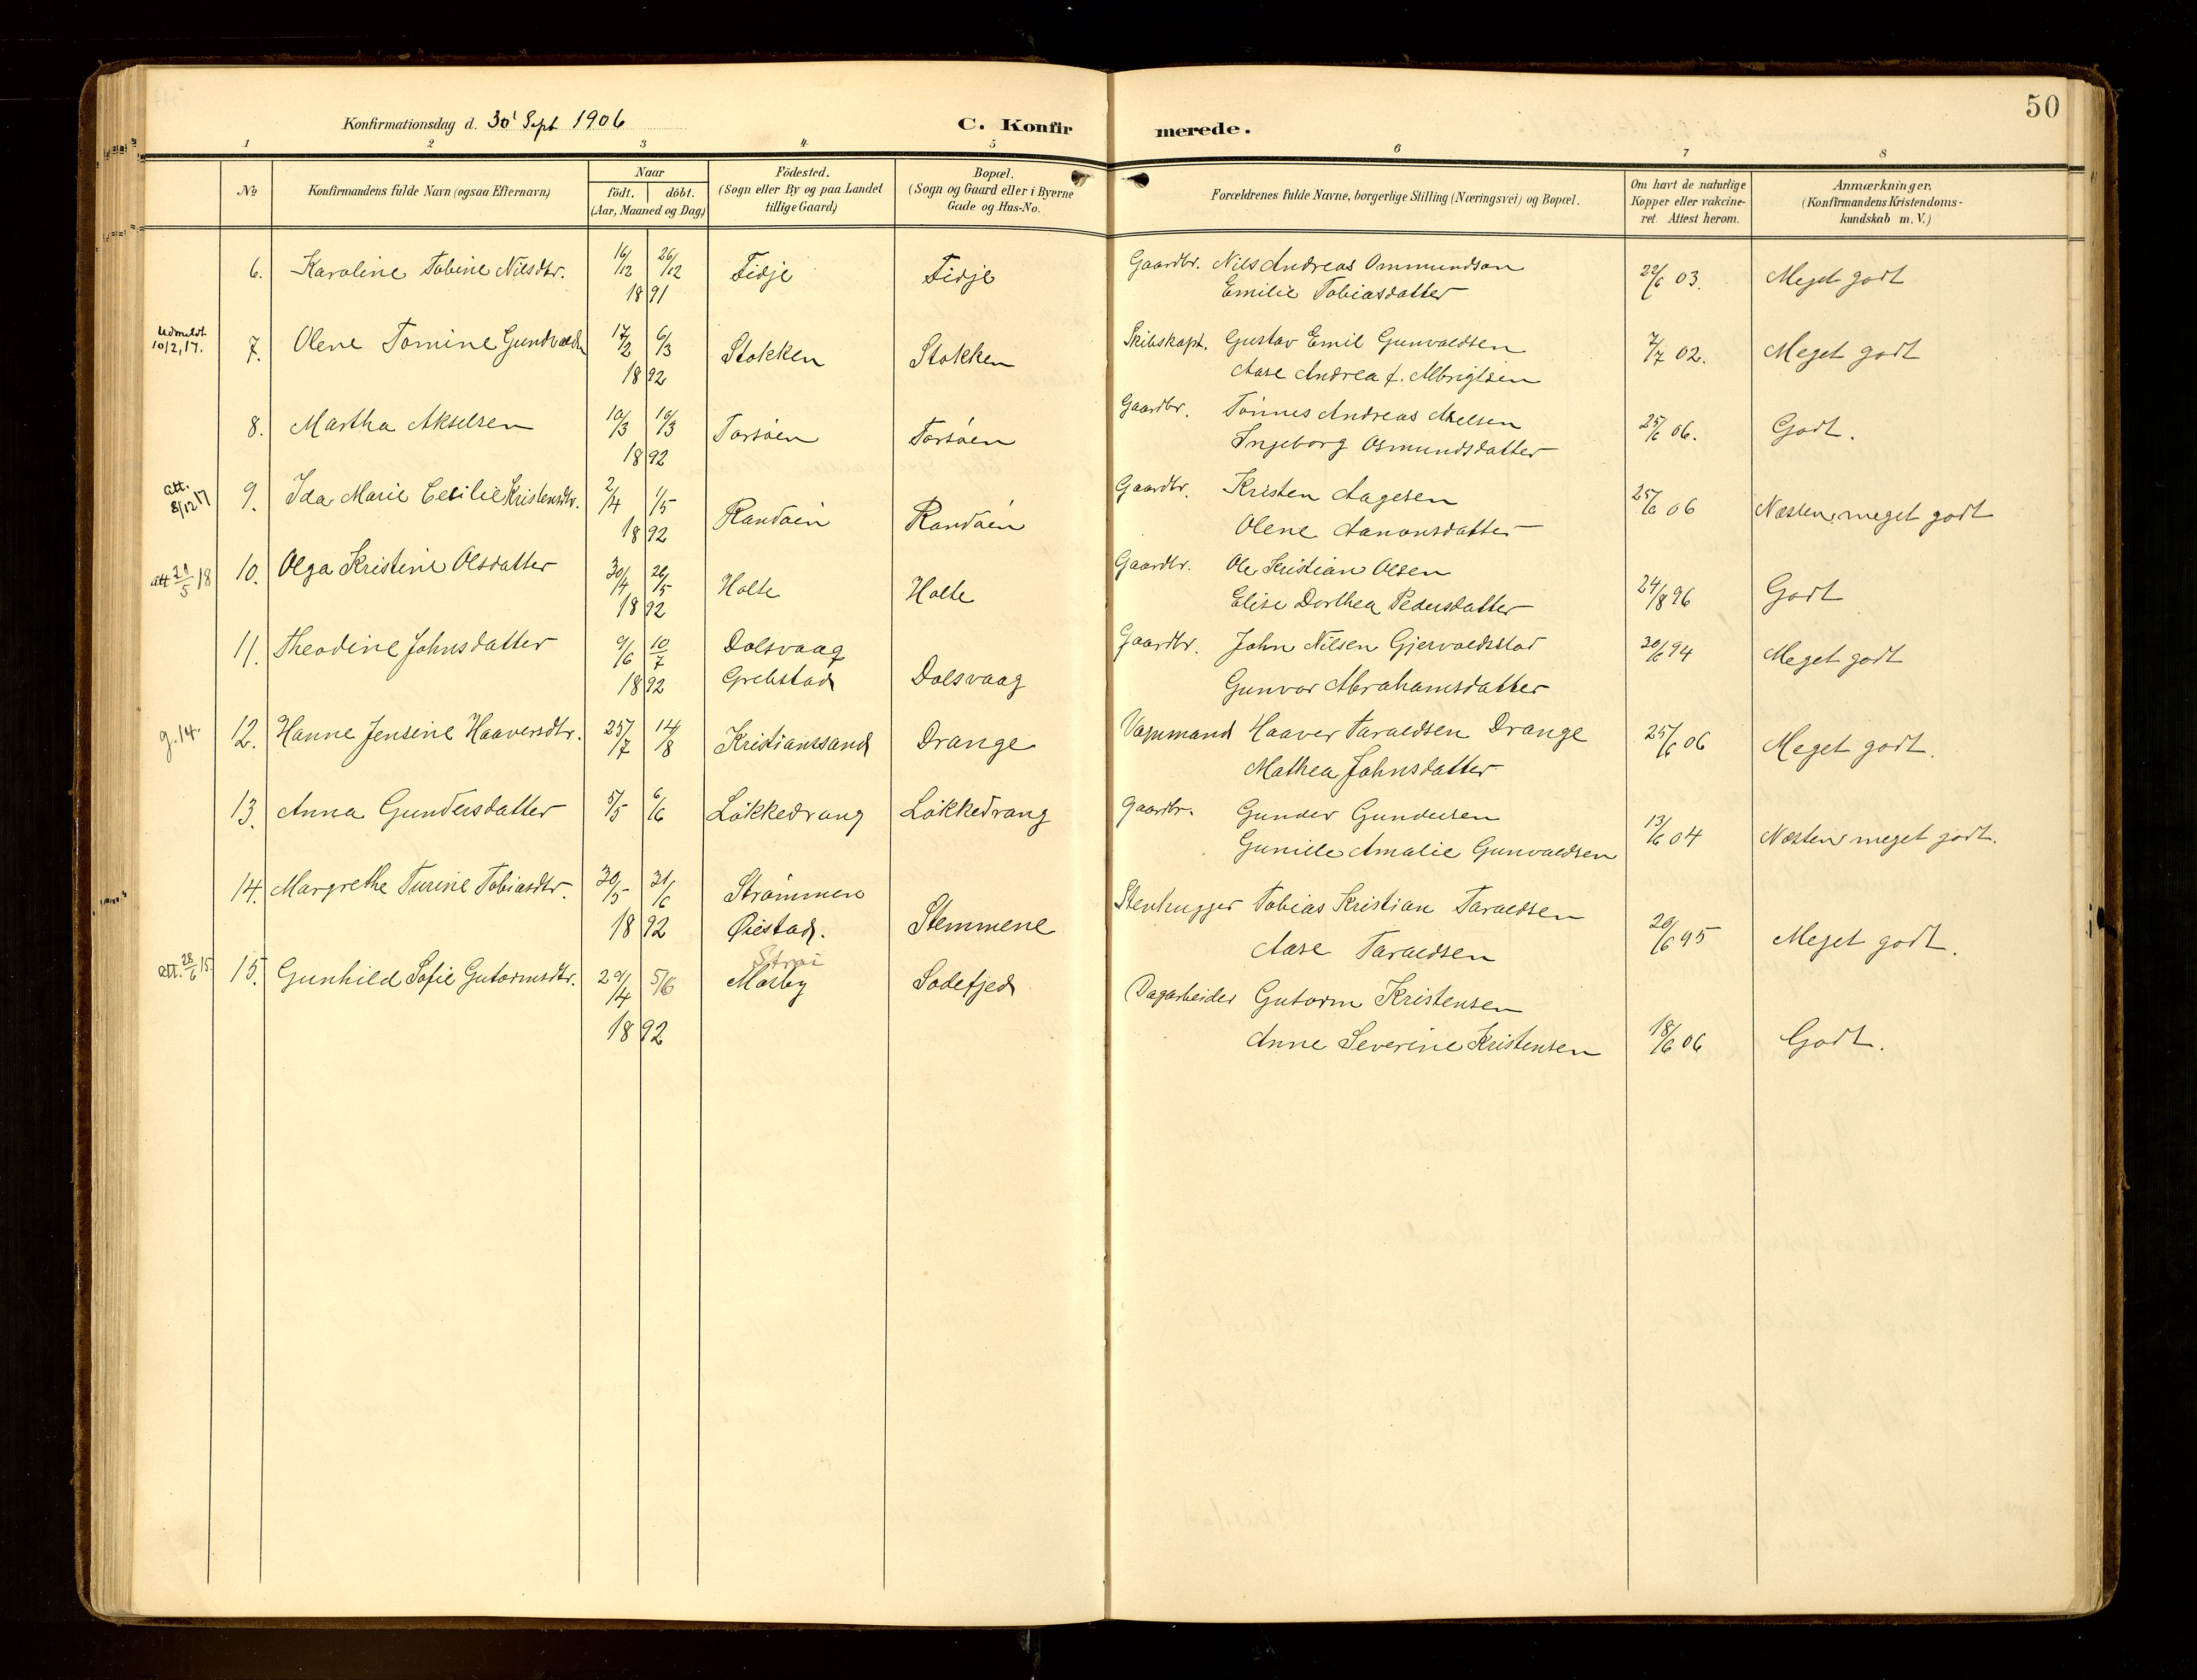 50
Konfirmationsdag d. 30' Sept 1906
C. Konfirmerede.
1 2 3 4 5 6 7 8
No Konfirmandens fulde Navn (ogsaa Efternavn) Naar födt. döbt. (Aar, Maaned og Dag) Födested. (Sogn eller By og paa Landet tillige Gaard) Bopæl. (Sogn og Gaard eller i Byerne Gade og Hus-No. Forældrenes fulde Navne, borgerlige Stilling (Næringsvei) og Bopæl. Om havt de naturlige Kopper eller vakcineret. Attest herom. Anmærkninger. (Konfirmandens Kristendomskundskab m. V.)
6. Karoline Tobine Nilsdtr. 16/12 26/12 Fidje Fidje Gaardbr. Nils Andreas Ommundson 22/6 03. Meget godt
1891 Emilie Tobiasdatter
Udmeldt 10/2, 17. 7. Olene Tomine Gundvalds 17/2 6/3 Stokken Stokken Skibskapt. Gustav Emil Gunvaldsen 7/7 02. Meget godt
1892 Aase Andrea f. Albrigtsen
8. Martha Akselsen 10/3 10/3 Torsöen Torsöen Gaardbr. Tönnes Andreas Axelsen 25/6 06. Godt.
1892 Ingeborg Osmundsdatter
att. 8/12 17 9. Ida Marie Cecilie Kristensdtr. 2/4 1/5 Randöen Randöen Gaardbr. Kristen Aagesen 25/6 06 Næsten meget godt
1892 Olene Aanonsdatter
att 21/5 18 10. Olga Kristine Olsdatter 30/4 26/5 Holte Holte Gaardbr. Ole Kristian Olsen 24/8 96 Godt
1892 Elise Dorthea Pedersdatter
11. Theodine Johnsdatter 9/6 10/7 Dolsvaag Dolsvaag Gaardbr. John Nilsen Gjervoldsstad 20/6 94 Meget godt
1892 Grebstad Gunvor Abrahamsdatter
g. 14. 12. Hanne Jensine Haaversdtr. 25/7 14/8 Kristianssand Drange Vognmand Haaver Taraldsen Drange 25/6 06 Meget godt.
Mathea Johnsdatter
13. Anna Gundersdatter 5/5 6/6 Lökkedrang Lökkedrang Gaardbr. Gunder Gundersen 13/6 04 Næsten meget godt.
Gunille Amalie Gunvaldsen
14. Margrethe Turine Tobiasdtr. 30/5 21/6 Strömmen Stemmene Stenhugger Tobias Kristian Taraldsen 20/6 95 Meget godt.
1892 Øiestad. Aase Taraldsen
att. 28/6 15 15. Gunhild Sofie Gutormsdtr. 29/4 5/6 Strai Mosby Sodefjed Dagarbeider Gutorm Kristensen 18/6 06 Godt.
1892 Anne Severine Kristensen